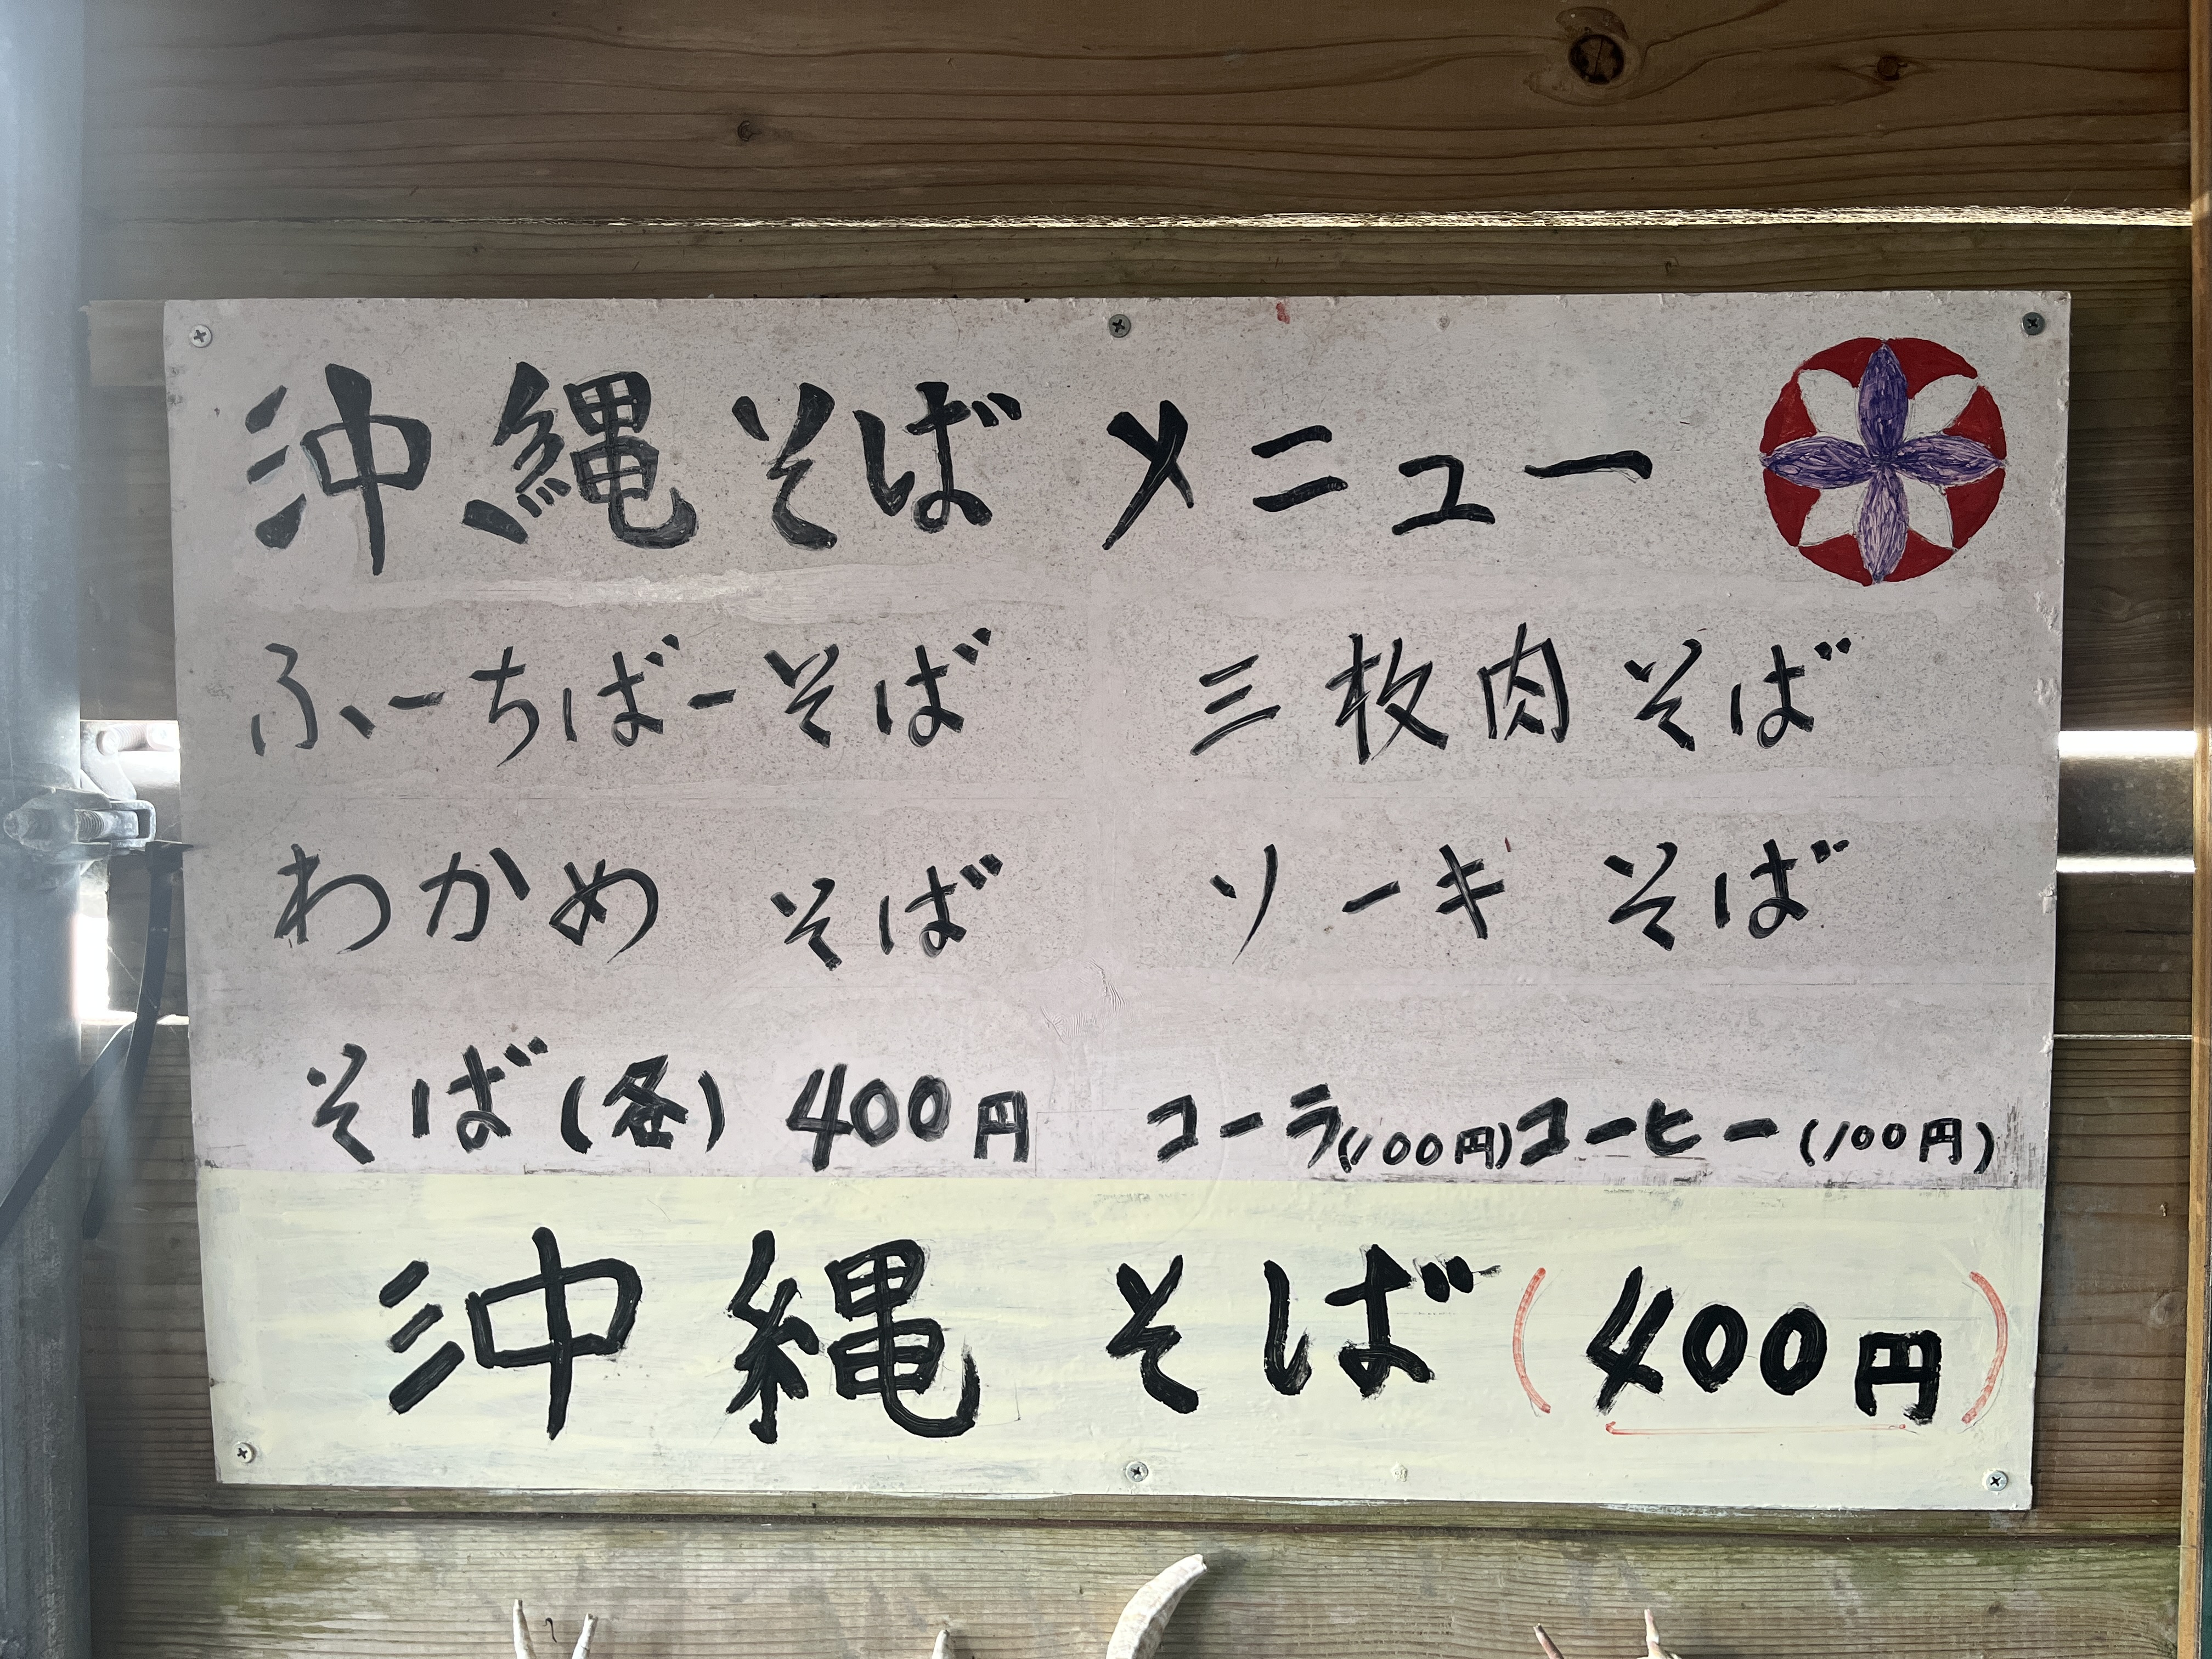 沖縄そば メニュー
ふーちばーそば 三枚肉そば
わかめ そば ソーキ そば
そば(各) 400円 コーラ(100円)コーヒー(100円)
沖縄 そば(400円)